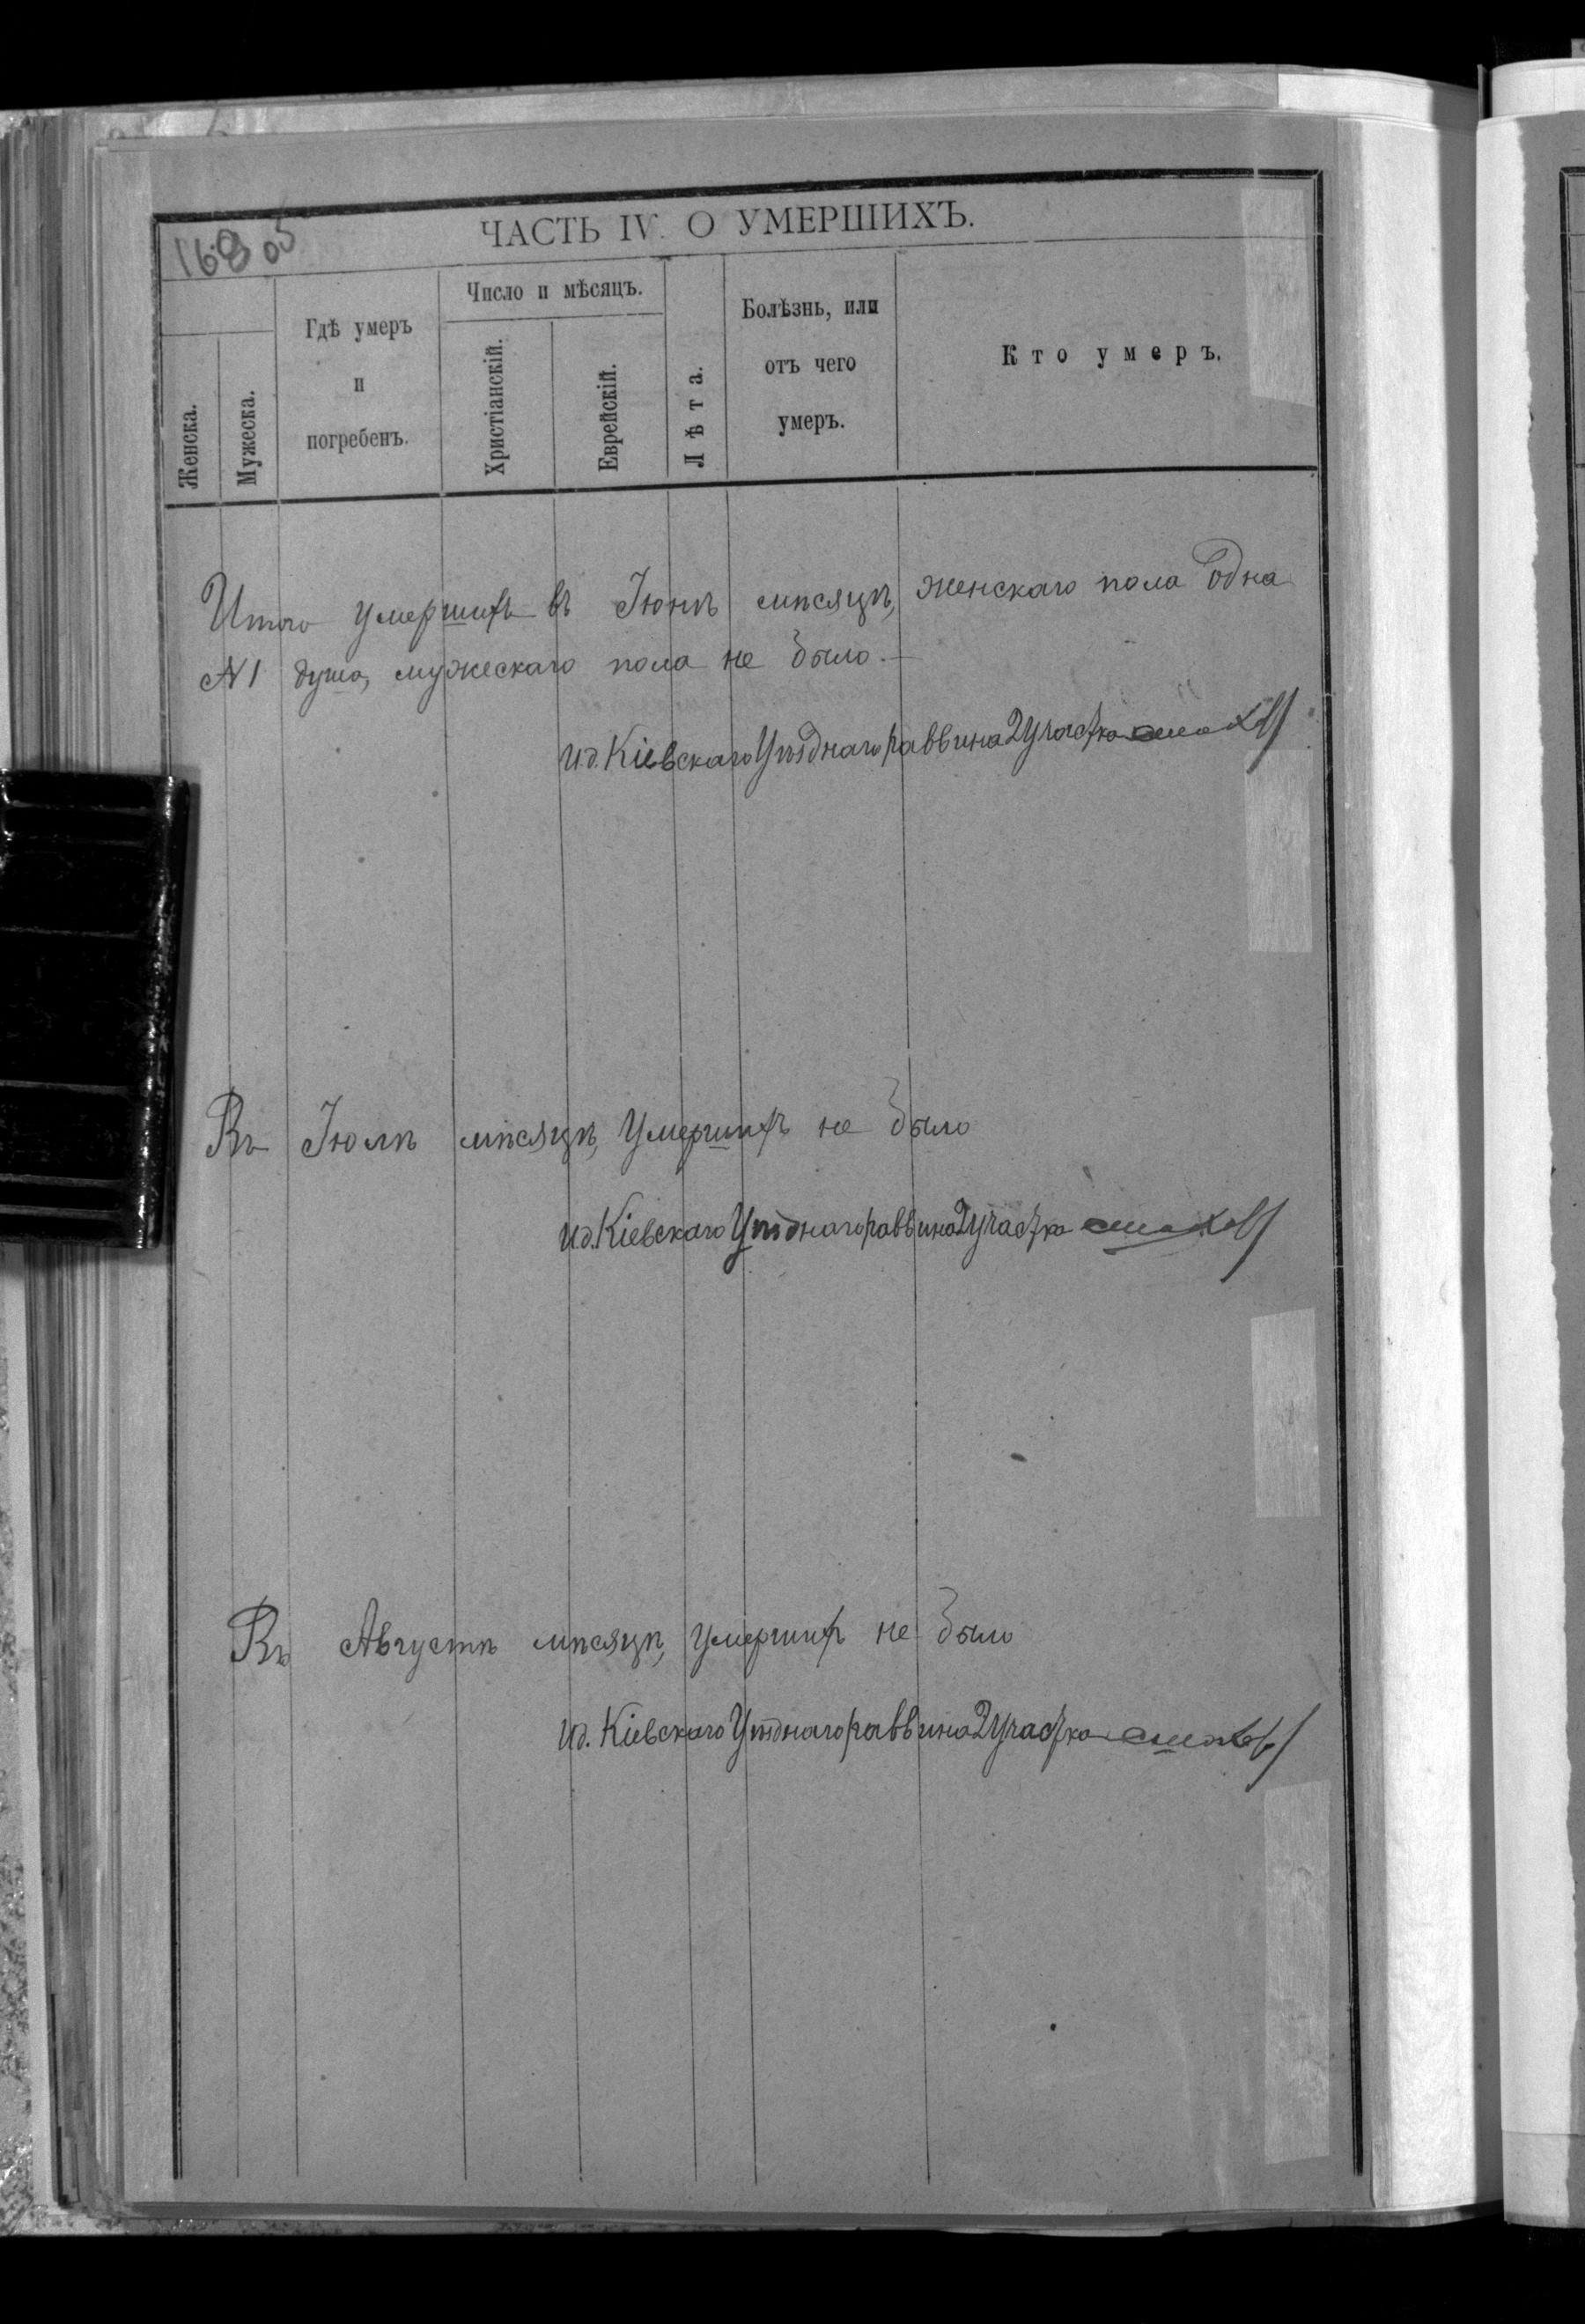 168 об
ЧАСТЬ IV. О УМЕРШИХЪ.
Женска.
Мужеска.
Гдѣ умеръ
и
погребенъ.
Число и мѣсяцъ.
Христіанскій.
Еврейскій.
Лѣта.
Болѣзнь, или
отъ чего
умеръ.
Кто умеръ.
Итого умершихъ въ Іюнѣ мѣсяцѣ, женскаго пола одна
№ 1 душа, мужескаго пола не было.—
И.д. Кіевскаго Уѣзднаго раввина 2 участка
Въ Іюлѣ мѣсяцѣ, умершихъ не было
И.д. Кіевскаго Уѣзднаго раввина 2 участка
Въ Августѣ мѣсяцѣ, умершихъ не было
И.д. Кіевскаго Уѣзднаго раввина 2 участка